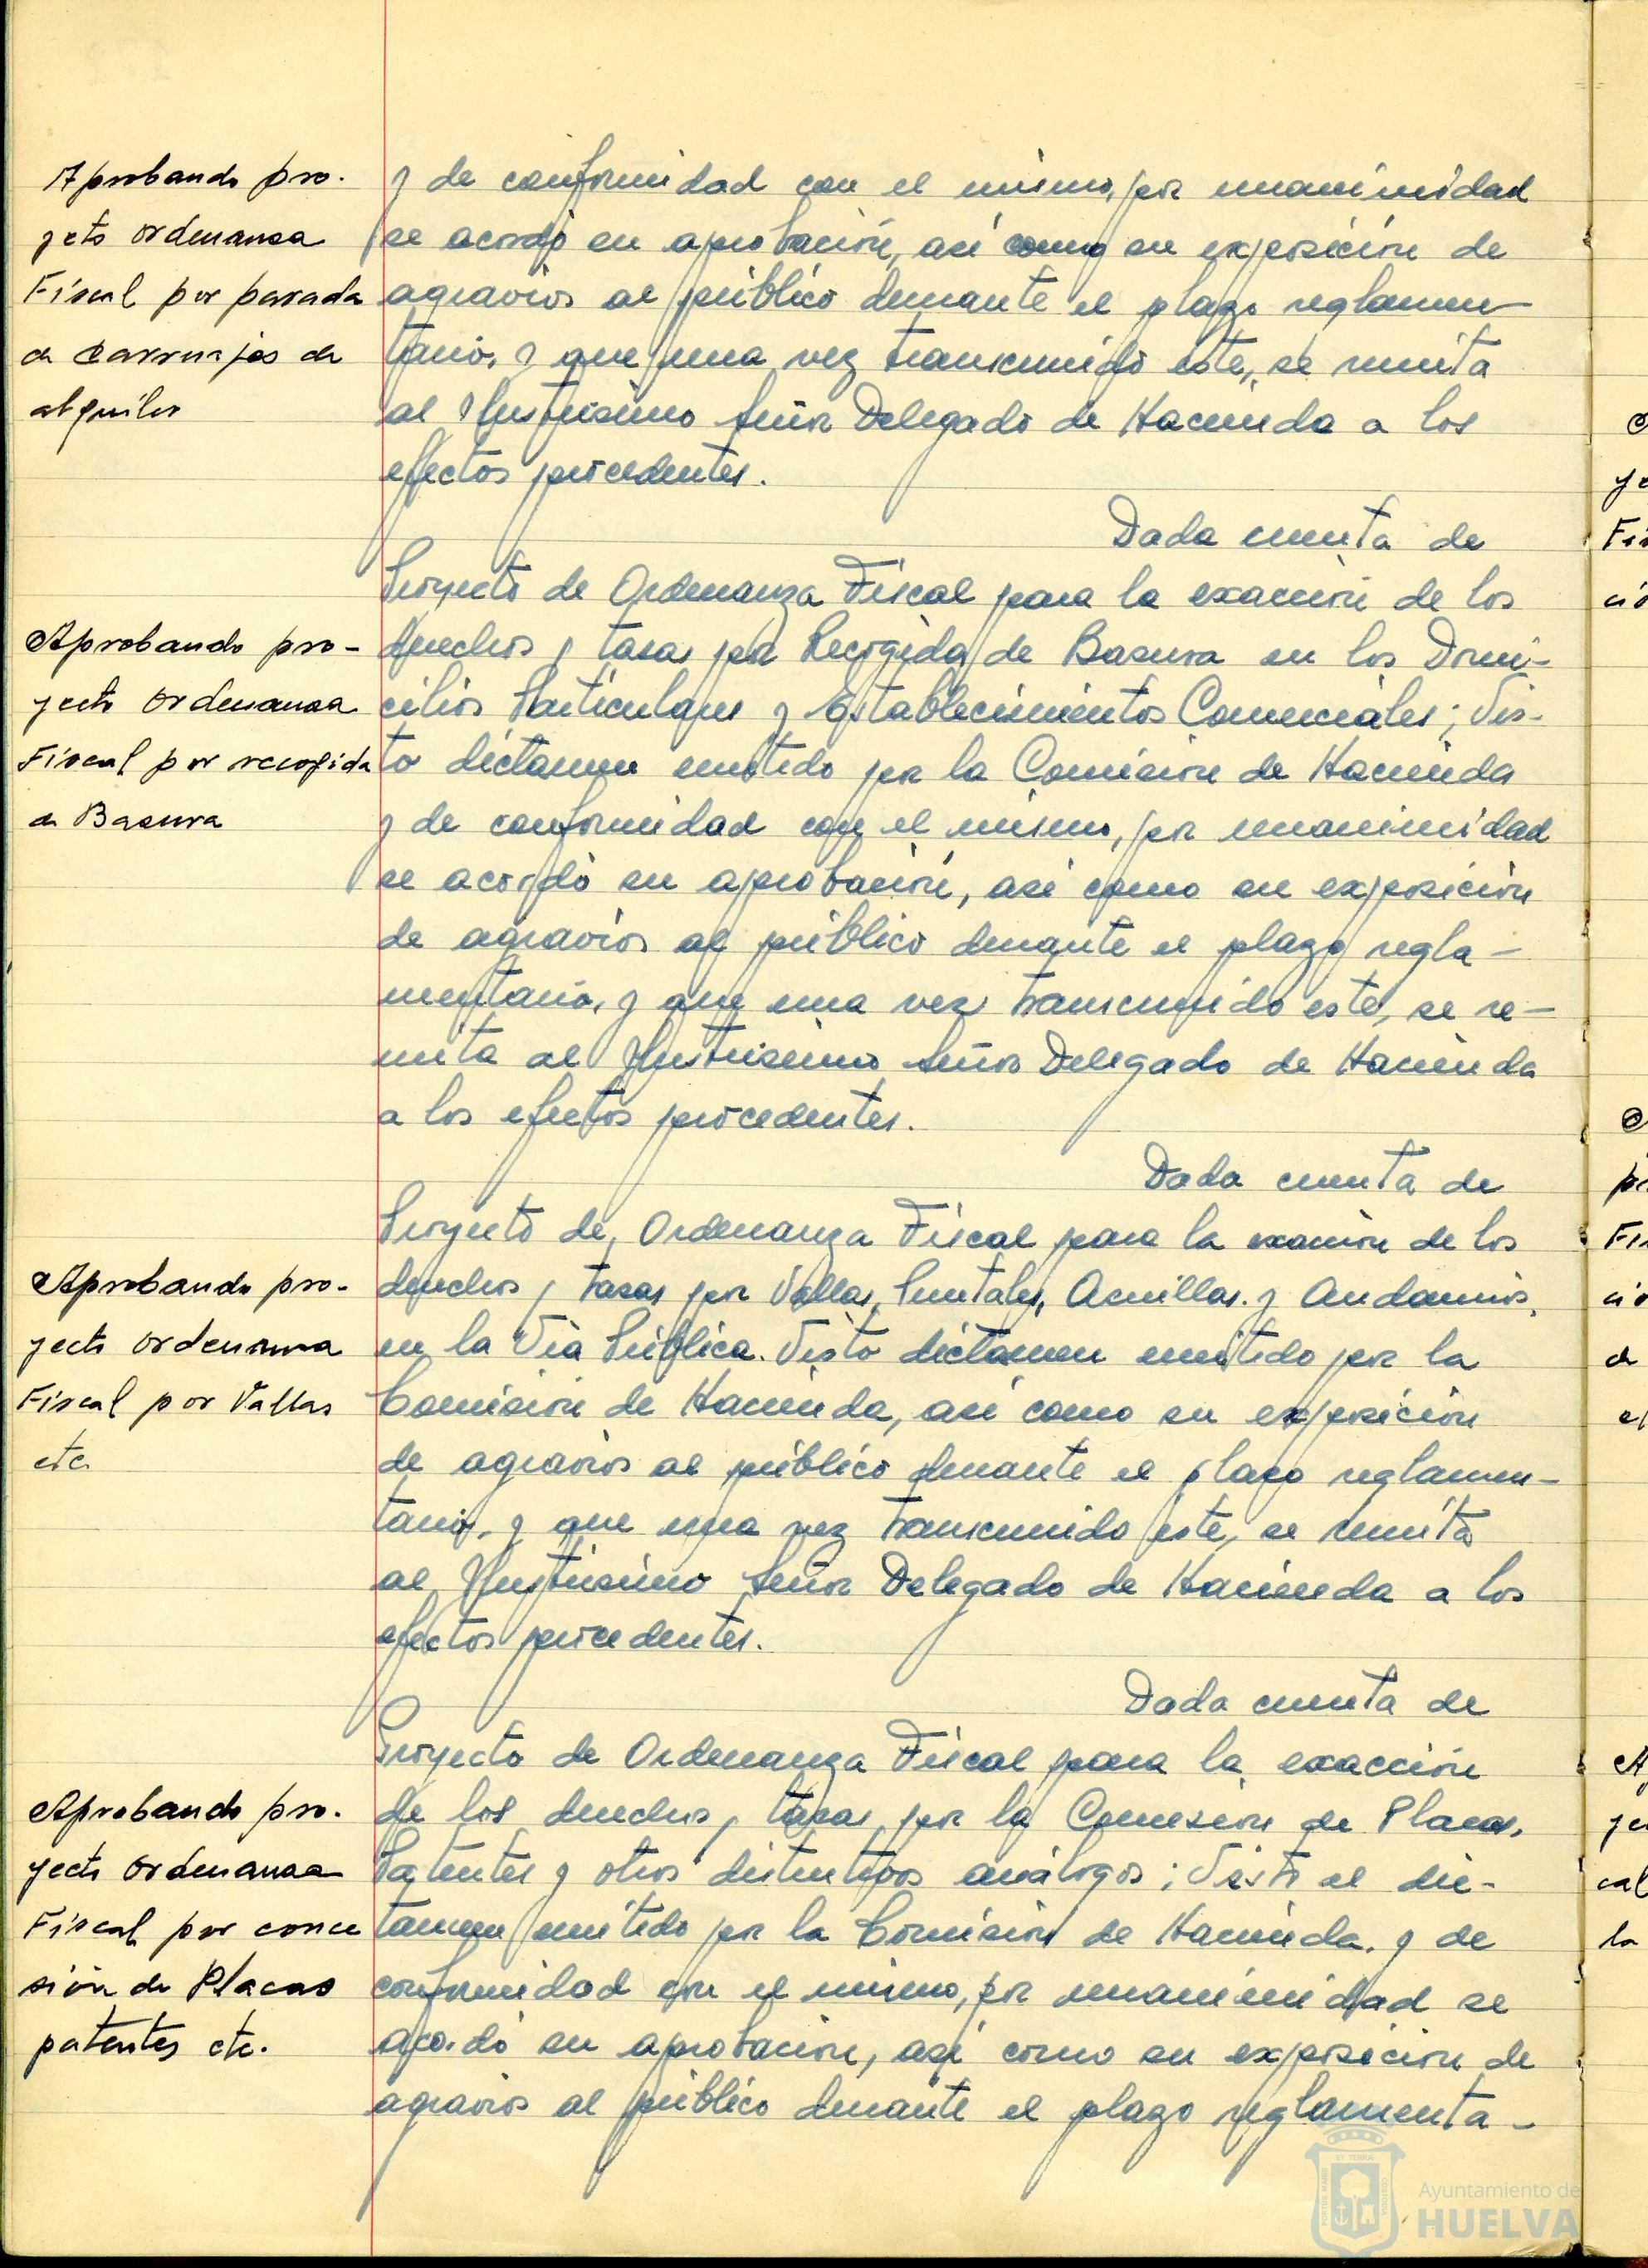 Aprobando pro-
yeto ordenansa
Fiscal por parada
de Carruajes de
alquiler
y de conformidad con el mismo, por unanimidad
se acordó su aprobación, así como su exposición de
agravios al público durante el plazo reglamen-
tario, y que una vez transcurrido este, se remita
al Ilustrísimo Señor Delegado de Hacienda a los
efectos procedentes.
Dada cuenta de
Proyecto de Ordenanza Fiscal para la exacción de los
Aprobando pro-
yecto ordenansa
Fiscal por recogida
de Basura
derechos y tasas por Recogida de Basura en los Domi-
cilios Particulares y Establecimientos Comerciales; Vis-
to dictamen emitido por la Comisión de Hacienda
y de conformidad con el mismo, por unanimidad
se acordó su aprobación, así como su exposición
de agravios al público durante el plazo regla-
mentario, y que una vez transcurrido este, se re-
mita al Ilustrísimo Señor Delegado de Hacienda
a los efectos procedentes.
Dada cuenta de
Proyecto de Ordenanza Fiscal para la exacción de los
Aprobando pro-
yecto ordenansa
Fiscal por Vallas
etc.
derechos y tasas por Vallas, Puntales, Acnillas. y Andamios,
en la Vía Pública. Visto dictamen emitido por la
Comisión de Hacienda, así como su exposición
de agravios al público durante el plazo reglamen-
tario, y que una vez transcurrido este, se remita
al Ilustrísimo Señor Delegado de Hacienda a los
efectos procedentes.
Dada cuenta de
Proyecto de Ordenanza Fiscal para la exacción
Aprobando pro-
yecto Ordenansa
Fiscal por conce
sión de Placas
patentes etc.
de los derechos y tasas por la Concesión de Placas,
Patentes y otros distintivos análogos; Visto el dic-
tamen emitido por la Comisión de Hacienda. y de
conformidad con el mismo, por unanimidad se
acordó su aprobación, así como su exposición de
agravios al público durante el plazo reglamenta-
Ayuntamiento de
HUELVA